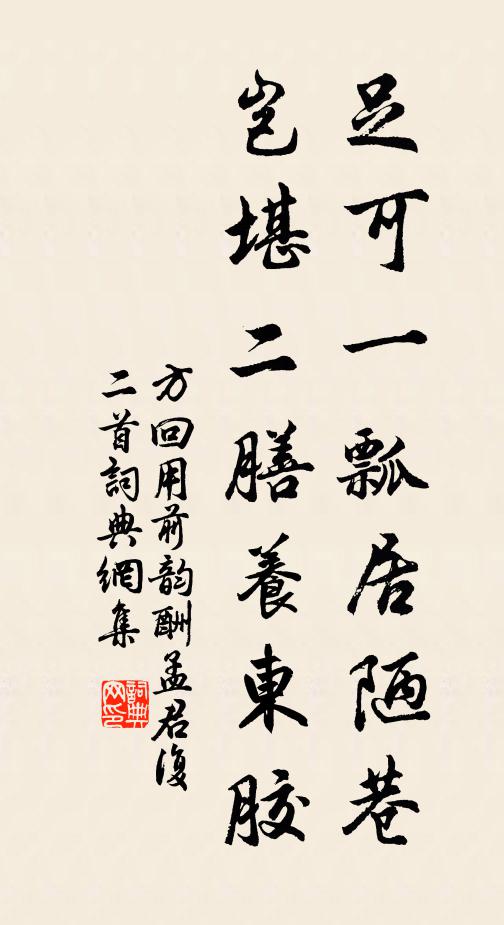 足可一瓢居陋巷
豈堪二膳養東胶
方回用前韵酬孟君復
二首詞典網集
詞典网印